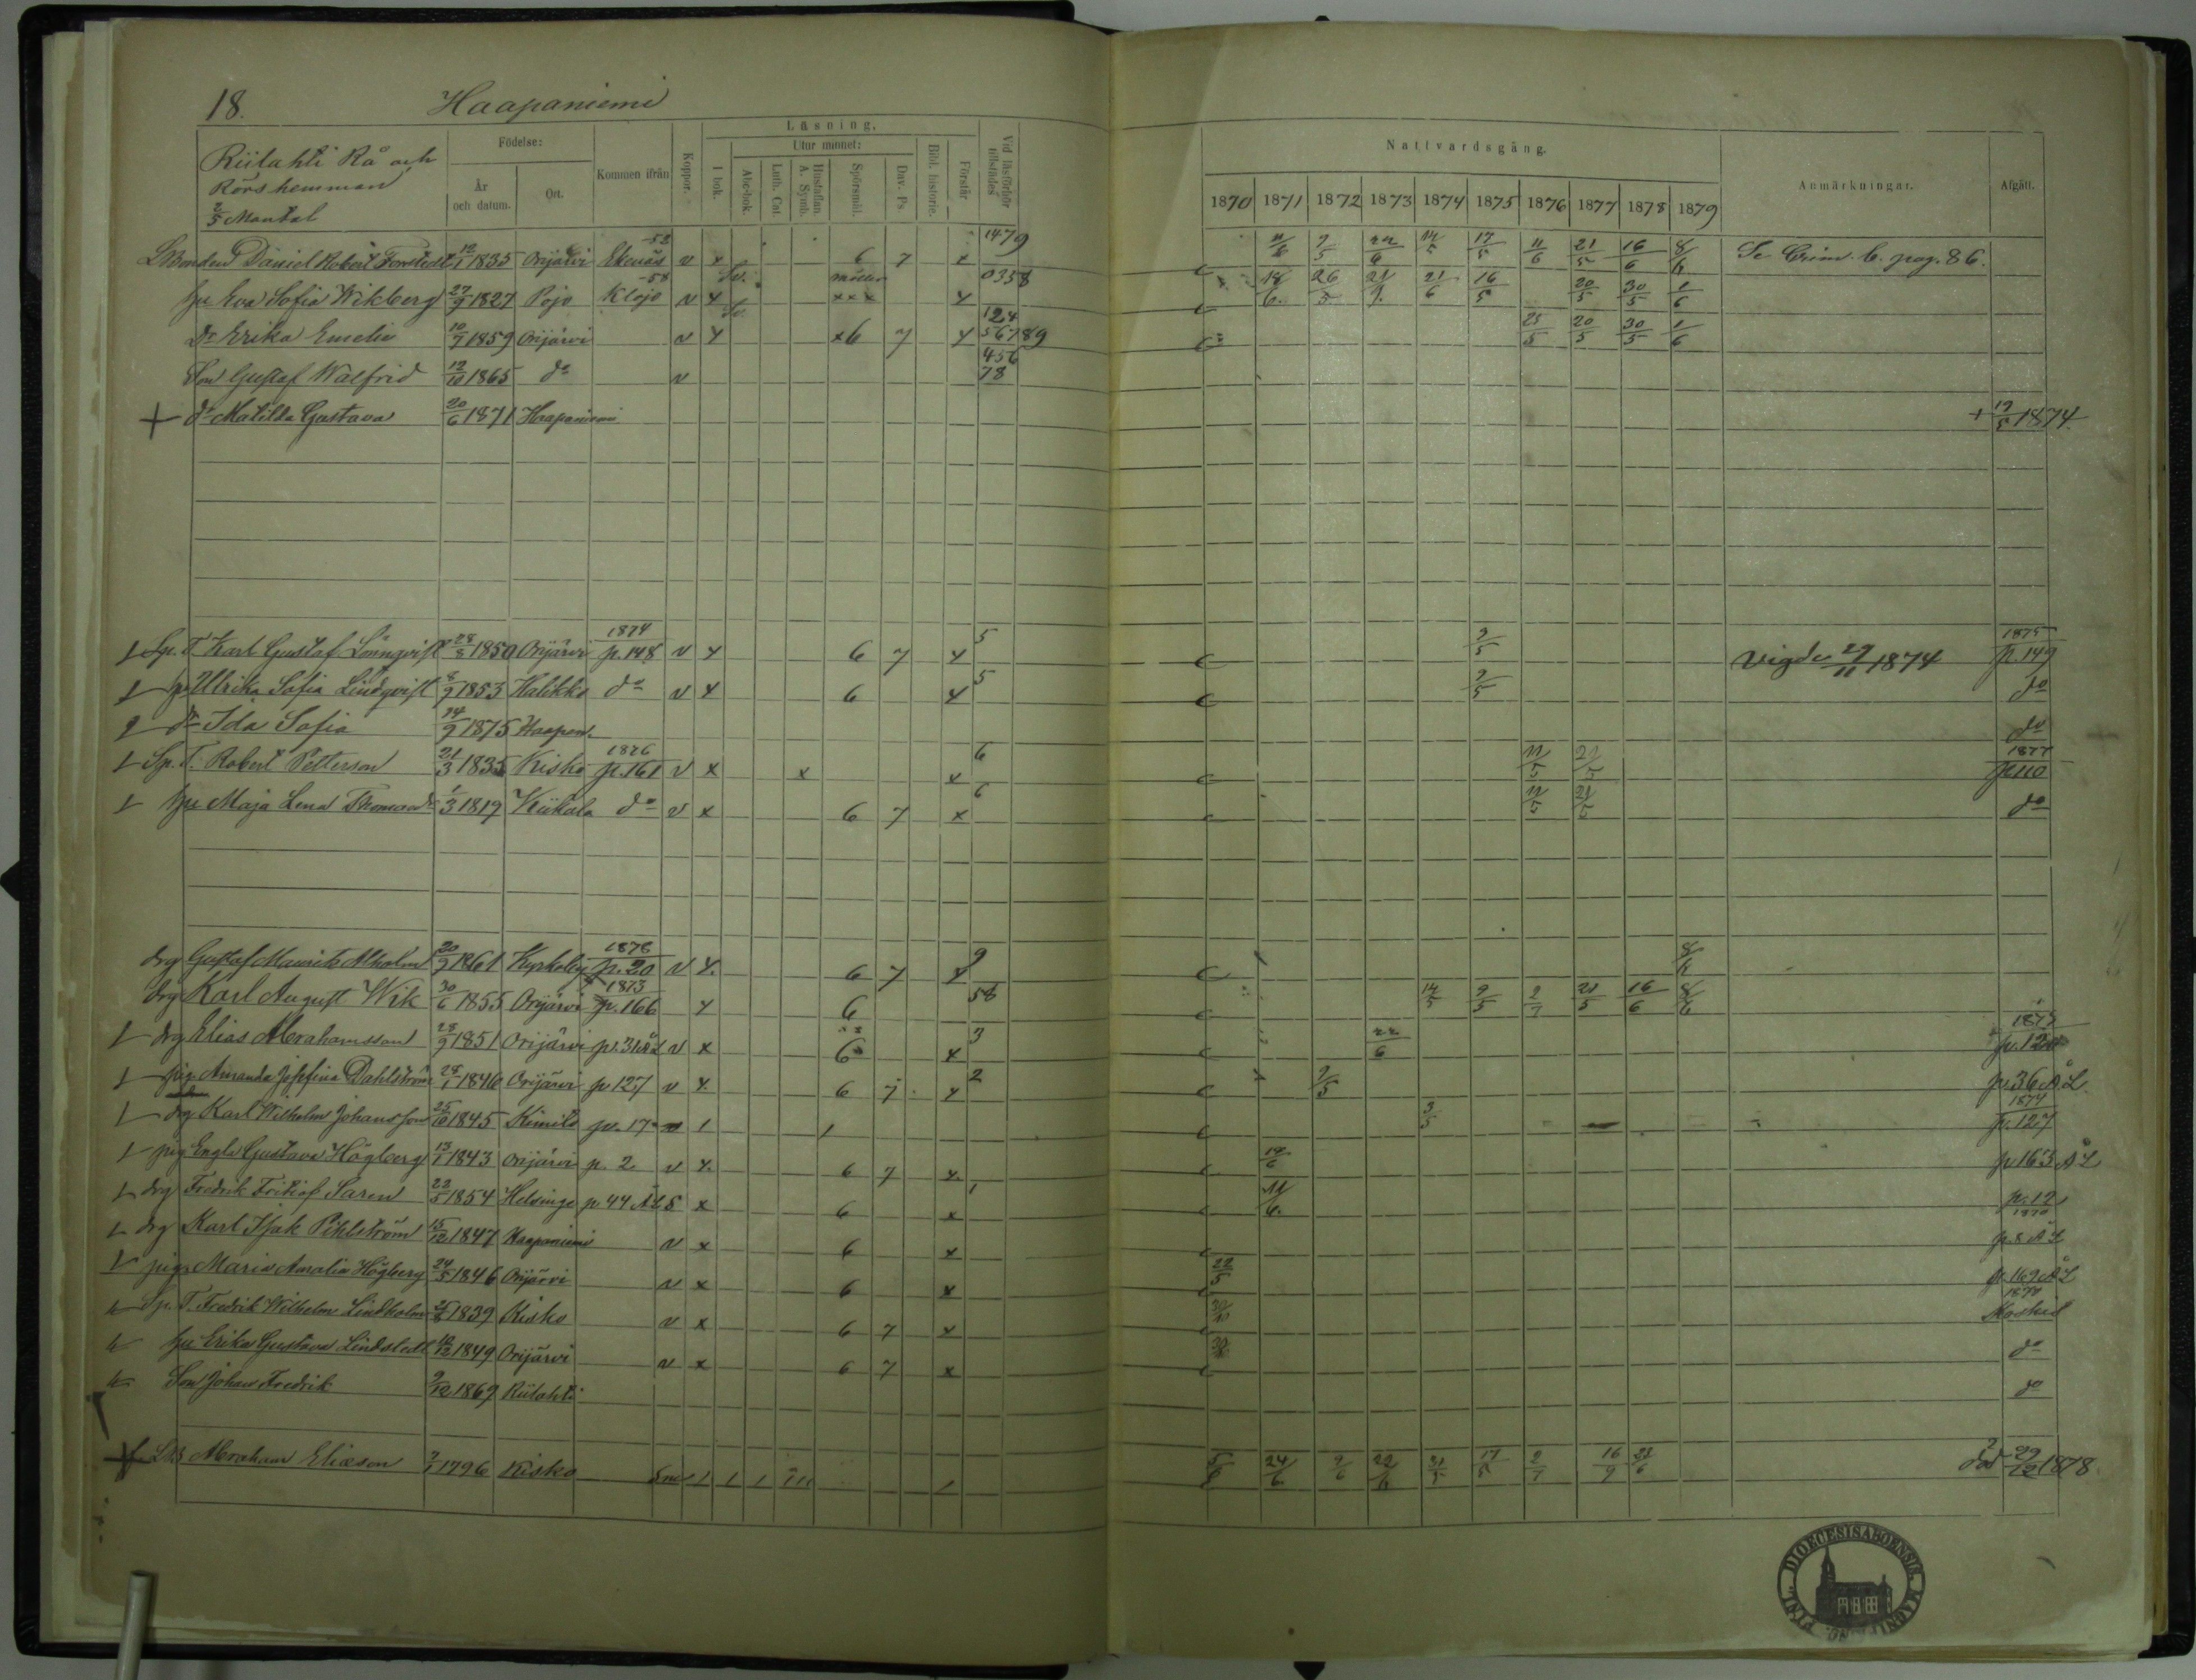 18. Haapaniemi
Riilahti Rå och
Rörs hemman
2/5 Mantal
Födelse:
År och datum.
Ort.
Kommen ifrån
Koppor.
Läsning.
I bok.
Utur minnet:
Abc-bok.
Luth. Cat.
Hustaflan A. Symb.
Spörsmål.
Dav. Ps.
Bibl. historie.
Förstår
Vid läsförhör tillstädes
Nattvardsgång.
1870 1871 1872 1873 1874 1875 1876 1877 1878 1879
Anmärkningar.
Afgått.
Bonden Daniel Robert Forstedt 12/1 1835 Orijärvi Ekenäs -52 v x 6 7 x 1479 11/6 7/5 22/6 14/5 17/5 11/6 21/5 16/6 8/6 Se Crim. b. pag. 86.
hu Eva Sofia Wikberg 27/9 1827 Pojo Klojo -58 v x xxx x 0358 18/6 26/5 21/6 16/5 20/5 30/5 1/6
Dr Erika Emelie 10/7 1859 Orijärvi v x x6 7 x 124 56789 25/5 20/5 30/5 1/6
Son Gustaf Walfrid 12/10 1865 do v 456 78
+ dr Matilda Gustava 20/6 1871 Haapaniemi + 12/5 1874.
Sp. T. Karl Gustaf Lönnqvist 28/8 1850 Orijärvi 1874 p. 148 v x 6 7 x 5 9/5 Vigde 29/11 1874 1875 p. 149
hu Ulrika Sofia Lindqvist 8/9 1853 Halikko do v x 6 x 5 9/5 do
dr Ida Sofia 14/9 1875 Haapan. do
Sp. T. Robert Petterson 21/3 1835 Kisko 1876 p. 161 v x x x 6 11/5 21/5 1877 p 110
hu Maja Lena Thomasdr 1/3 1819 Kiikala do v x 6 7 x 6 11/5 21/5 do
drg Gustaf Maurits Alholm 20/9 1861 Kyrkoby 1878 p. 20 v x. 6 7 x 9 8/6
drg Karl August Wik 30/6 1855 Orijärvi 1873 p. 166 x 6 58 14/5 9/5 2/7 21/5 16/6 8/6
drg Elias Abrahamsson 28/9 1851 Orijärvi p. 31 ÄL v x 6 x 3 22/6
pig. Amanda Josefina Dahlström 28/1 1846 Orijärvi p 127 v x. 6 7 x 2 7/5 p. 36 ÄL
drg Karl Wilhelm Johansson 25/10 1845 Kimito p. 17 1 1 3/5 1874 p. 127
pig Engla Gustava Högberg 13/1 1843 Orijärvi p. 2 v x. 6 7 x. 18/6 p 163 ÄL
drg Fredrik Fritiof Saren 22/5 1854 Helsinge p 44 ÄL S x 6 x 1 11/6. p. 12
drg Karl Isak Pihlström 15/12 1847 Haapaniemi v x 6 x 1870 p. 8 ÄL
pig. Maria Amalia Högberg 24/5 1846 Orijärvi v x 6 x 22/5 p. 169 ÄL
Sp. T. Fredrik Wilhelm Lindholm 1839 Kisko v x 6 7 x 1870
hu Erika Gustava Lindstedt 1849 Orijärvi v x 6 7 x do
Son Johan Fredrik 9/12 1869 Riilahti do
Abraham Eliæson 7/1 1796 Kisko 1 1 1 5/6 24/6 9/6 22/6 31/5 17/5 2/7 16/9 21/6 död 29/12 1878.
FINL. DIOECESIS ABOENSIS. MAGNI